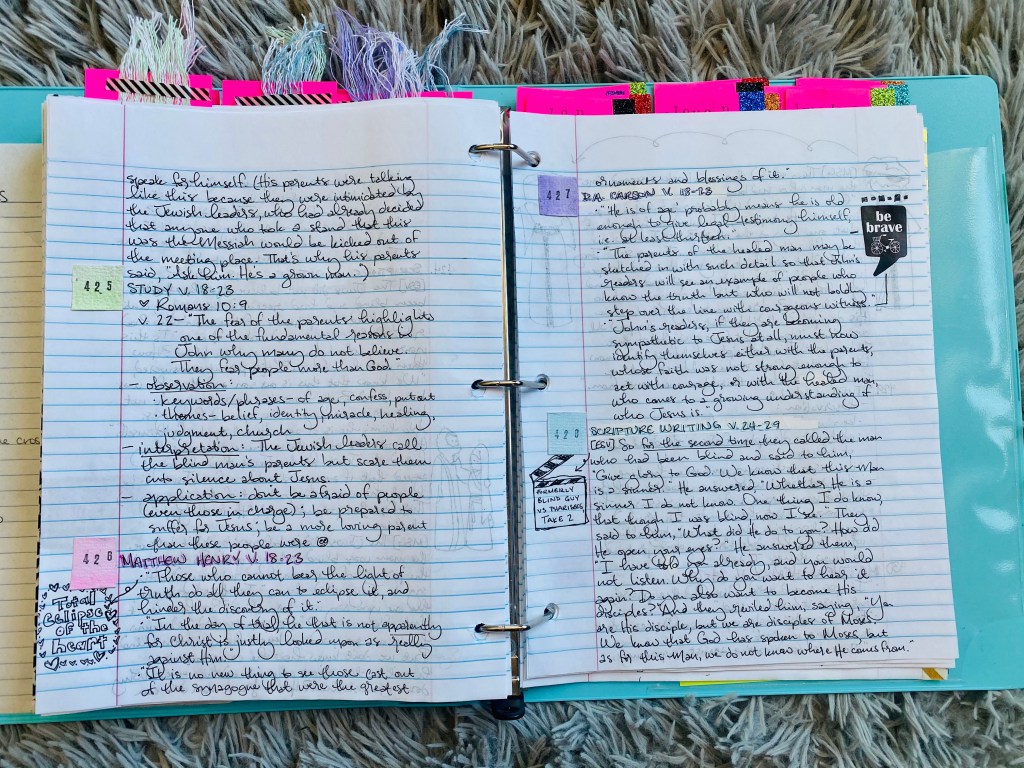 speak for himself. (His parents were talking
like this because they were intimidated by
the Jewish leaders, who had already decided
that anyone who took a stand that this
was the Messiah would be kicked out of
the meeting place. That's why his parents
said, "Ask him. He's a grown man.")
425
STUDY V. 18-23
♡ Romans 10:9
v. 22- "The fear of the parents highlights
one of the fundamental reasons
John why many do not believe.
They fear people more than God"
- observation:
· keywords/phrases- of age, confess, put out
· themes- belief, identity, miracle, healing,
judgment, church
- interpretation: The Jewish leaders call
the blind man's parents but scare them
into silence about Jesus.
- application: don't be afraid of people
(even those in charge); be prepared to
suffer for Jesus; be a more loving parent
than these people were
426
MATTHEW HENRY V. 18-23
· "Those who cannot bear the light of
truth do all they can to eclipse it, and
hinder the discovery of it."
· "In the day of trial, he that is not apparently
for Christ is justly looked upon as really
against Him"
· "It is no new thing to see those cast out
of the synagogue that were the greatest
Total
eclipse
of the
heart
ornaments and blessings of it."
427
D.A. CARSON V. 18-23
· "'He is of age' probably means he is old
enough to give legal testimony himself,
i.e. at least thirteen"
· "The parents of the healed man may be
sketched in with such detail so that John's
readers will see an example of people who
know the truth but who will not boldly
step over the line with courageous witness."
· "John's readers, if they are becoming
sympathetic to Jesus at all, must now
identify themselves either with the parents,
whose faith was not strong enough to
act with courage, or with the healed man,
who comes to a growing understanding of
who Jesus is."
be
brave
428
SCRIPTURE WRITING V. 24-29
[ESV] So for the second time they called the man
who had been blind and said to him,
"Give glory to God. We know that this Man
is a sinner." He answered, "Whether He is a
sinner I do not know. One thing I do know,
that though I was blind, now I see." They
said to him, "What did He do to you? How did
He open your eyes?" He answered them,
"I have told you already, and you would
not listen. Why do you want to hear it
again? Do you also want to become His
disciples?" And they reviled him, saying, "You
are His disciple, but we are disciples of Moses.
We know that God has spoken to Moses, but
as for this Man, we do not know where He comes from."
FORMERLY
BLIND GUY
VS PHARISEES,
TAKE 2